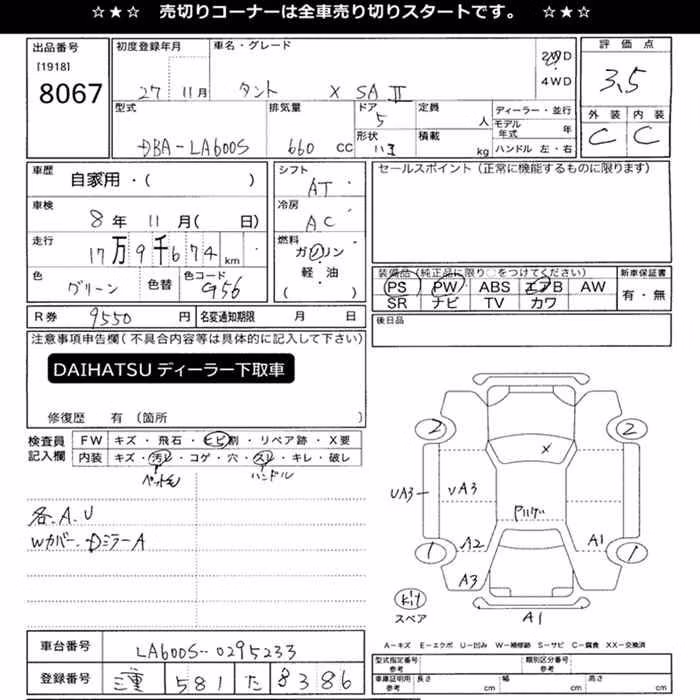 ☆★☆ 売切りコーナーは全車売り切りスタートです。 ☆★☆
出品番号
[1918]
8067
初度登録年月
27 11月
車名・グレード
タント X SAⅡ
2WD
4WD
評価点
3.5
外装 内装
C C
型式
DBA-LA600S
排気量
660 cc
ドア
5
形状
定員
人
積載
kg
ディーラー・並行
モデル年式 年
ハンドル 左・右
車歴
自家用・( )
車検
8年 11月( 日)
走行
17万9千674km
色
グリーン
色替
色コード
G56
シフト
AT
冷房
AC
燃料
ガソリン
軽・油
( )
セールスポイント(正常に機能するものに限ります)
装備品(純正品に限り○をつけてください)
PS PW ABS エアB AW
SR ナビ TV カワ
新車保証書
有・無
R券 9550円
名変通知期限 月 日
後日品
注意事項申告欄(不具合内容等は具体的に記入して下さい)
DAIHATSU ディーラー下取車
修復歴 有(箇所 )
検査員記入欄
FW キズ・飛石・ヒビ割・リペア跡・X要
内装 キズ・汚れ・コゲ・穴・スレ・キレ・破レ
ペット毛 ハンドル
各.A.U
Wカバー.DミラーA
2 2
X
UA3 UA3
Pバイザー
1 A2 A1 1
A3
A1
kit
スペア
A-キズ E-エクボ U-凹み W-補修跡 S-サビ C-腐食 XX-交換済
車台番号 LA600S-0295233
登録番号 三重 581 た 8386
型式指定番号
参考
類別区分番号
参考
車庫証明用
参考
長さ cm
幅 cm
高さ cm